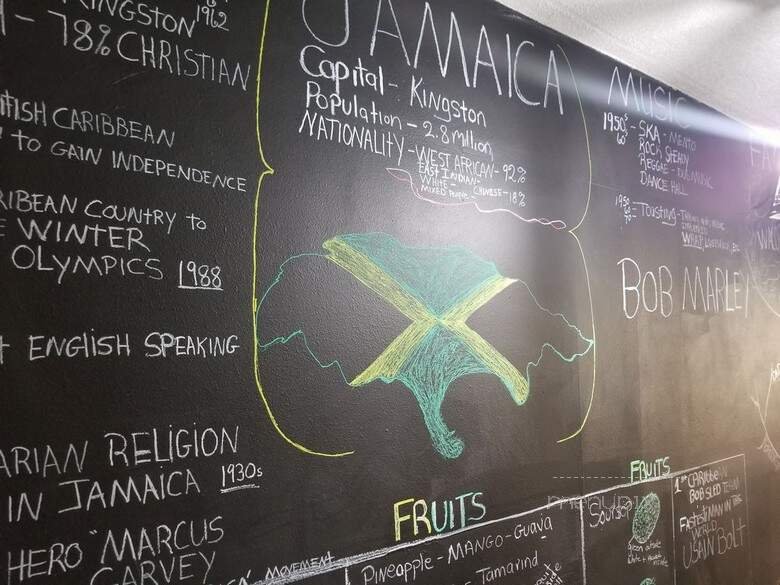 KINGSTON 1962
78% CHRISTIAN
CARIBBEAN
TO GAIN INDEPENDENCE
COUNTRY TO
WINTER
OLYMPICS 1988
ENGLISH SPEAKING
RELIGION
IN JAMAICA 1930s
HERO "MARCUS
GARVEY
MOVEMENT
JAMAICA
Capital - Kingston
Population - 2.8 million
NATIONALITY - WEST AFRICAN - 92%
EAST INDIAN
WHITE - CHINESE - 18%
MIXED
MUSIC
1950's - SKA - MENTO
60' ROCK STEADY
REGGAE - DUB MUSIC
DANCE HALL
1950 - TOASTING -
BOB MARLEY
FRUITS
Pineapple - MANGO - Guava
Tamarind
FRUITS
Soursop
green outside
1st CARIBBEAN
BOB SLED TEAM
FASTEST MAN IN THE
WORLD
USAIN BOLT